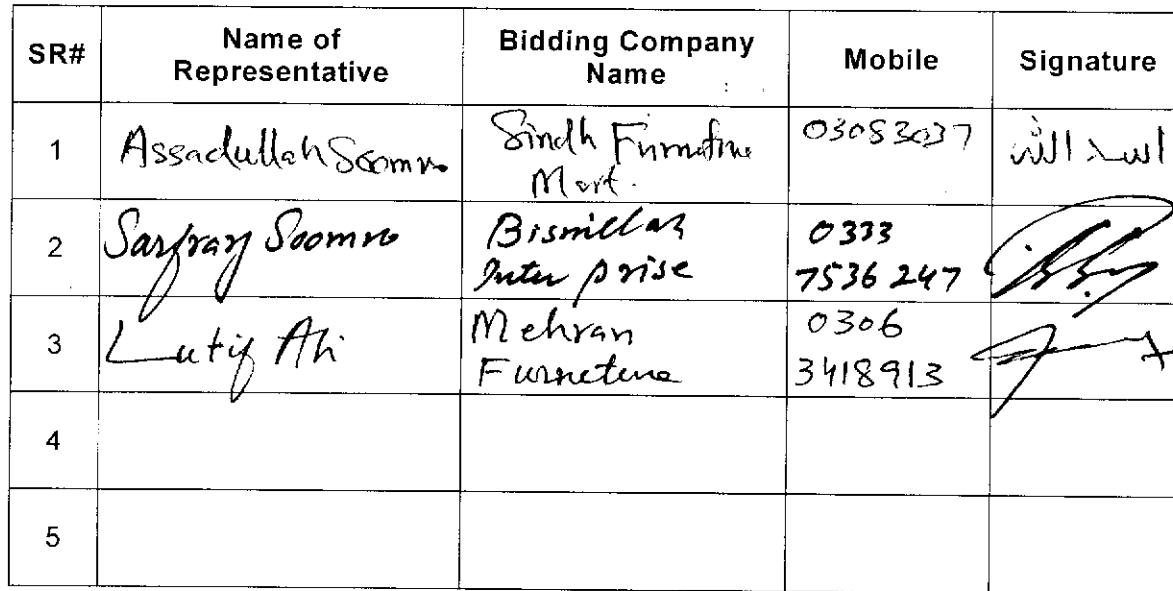 SR# Name of Representative Bidding Company Name Mobile Signature
1 Assadullah Soomro Sindh Furniture 03083037 اسد الله
Mart.
2 Sarfraz Soomro Bismillah 0333
Inter prise 7536247
3 Lutif Ali Mehran 0306
Furneture 3418913
4
5